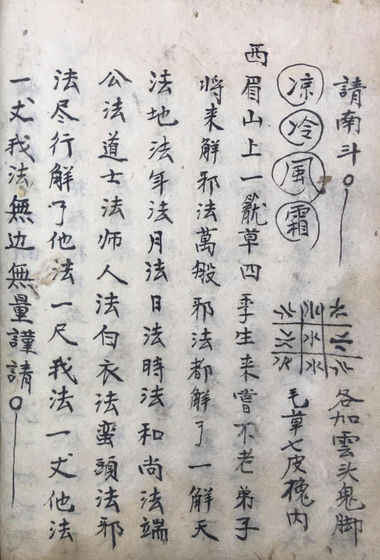 請南斗
各加雲头鬼脚
凉冷風霜
毛草七皮碗内
西眉山上一草四季生来嘗不老弟子
将来解邪法萬般邪法都解了一解天
法地法年法月法日法時法和尚法端
公法道士法师人法白衣法蛮頭法邪
法尽行解了他法一尺我法一丈他法
一丈我法無边無量謹請